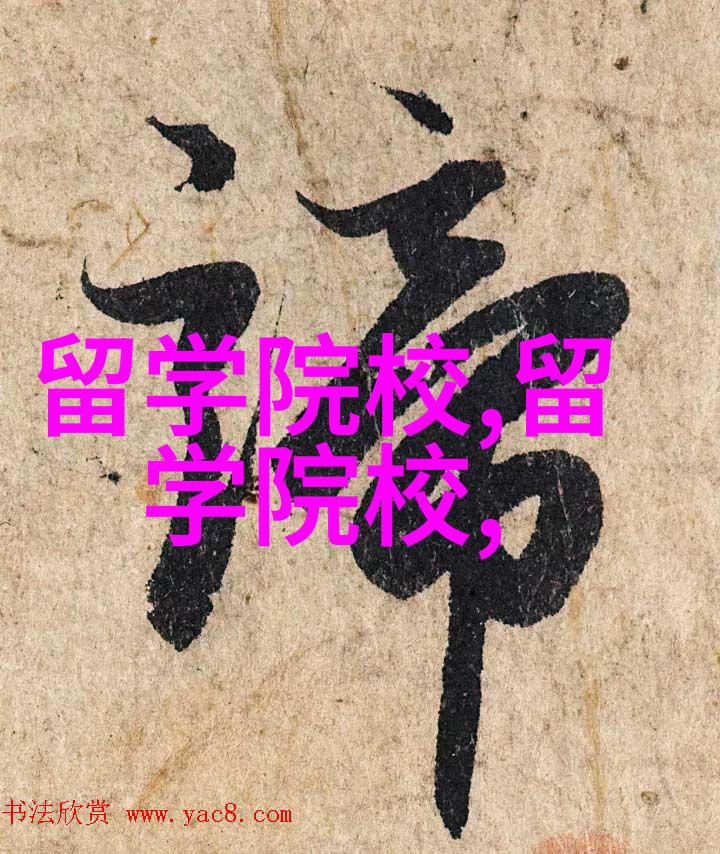 諦
留学院校,留
学院校,
书法欣赏 www.yac8.com